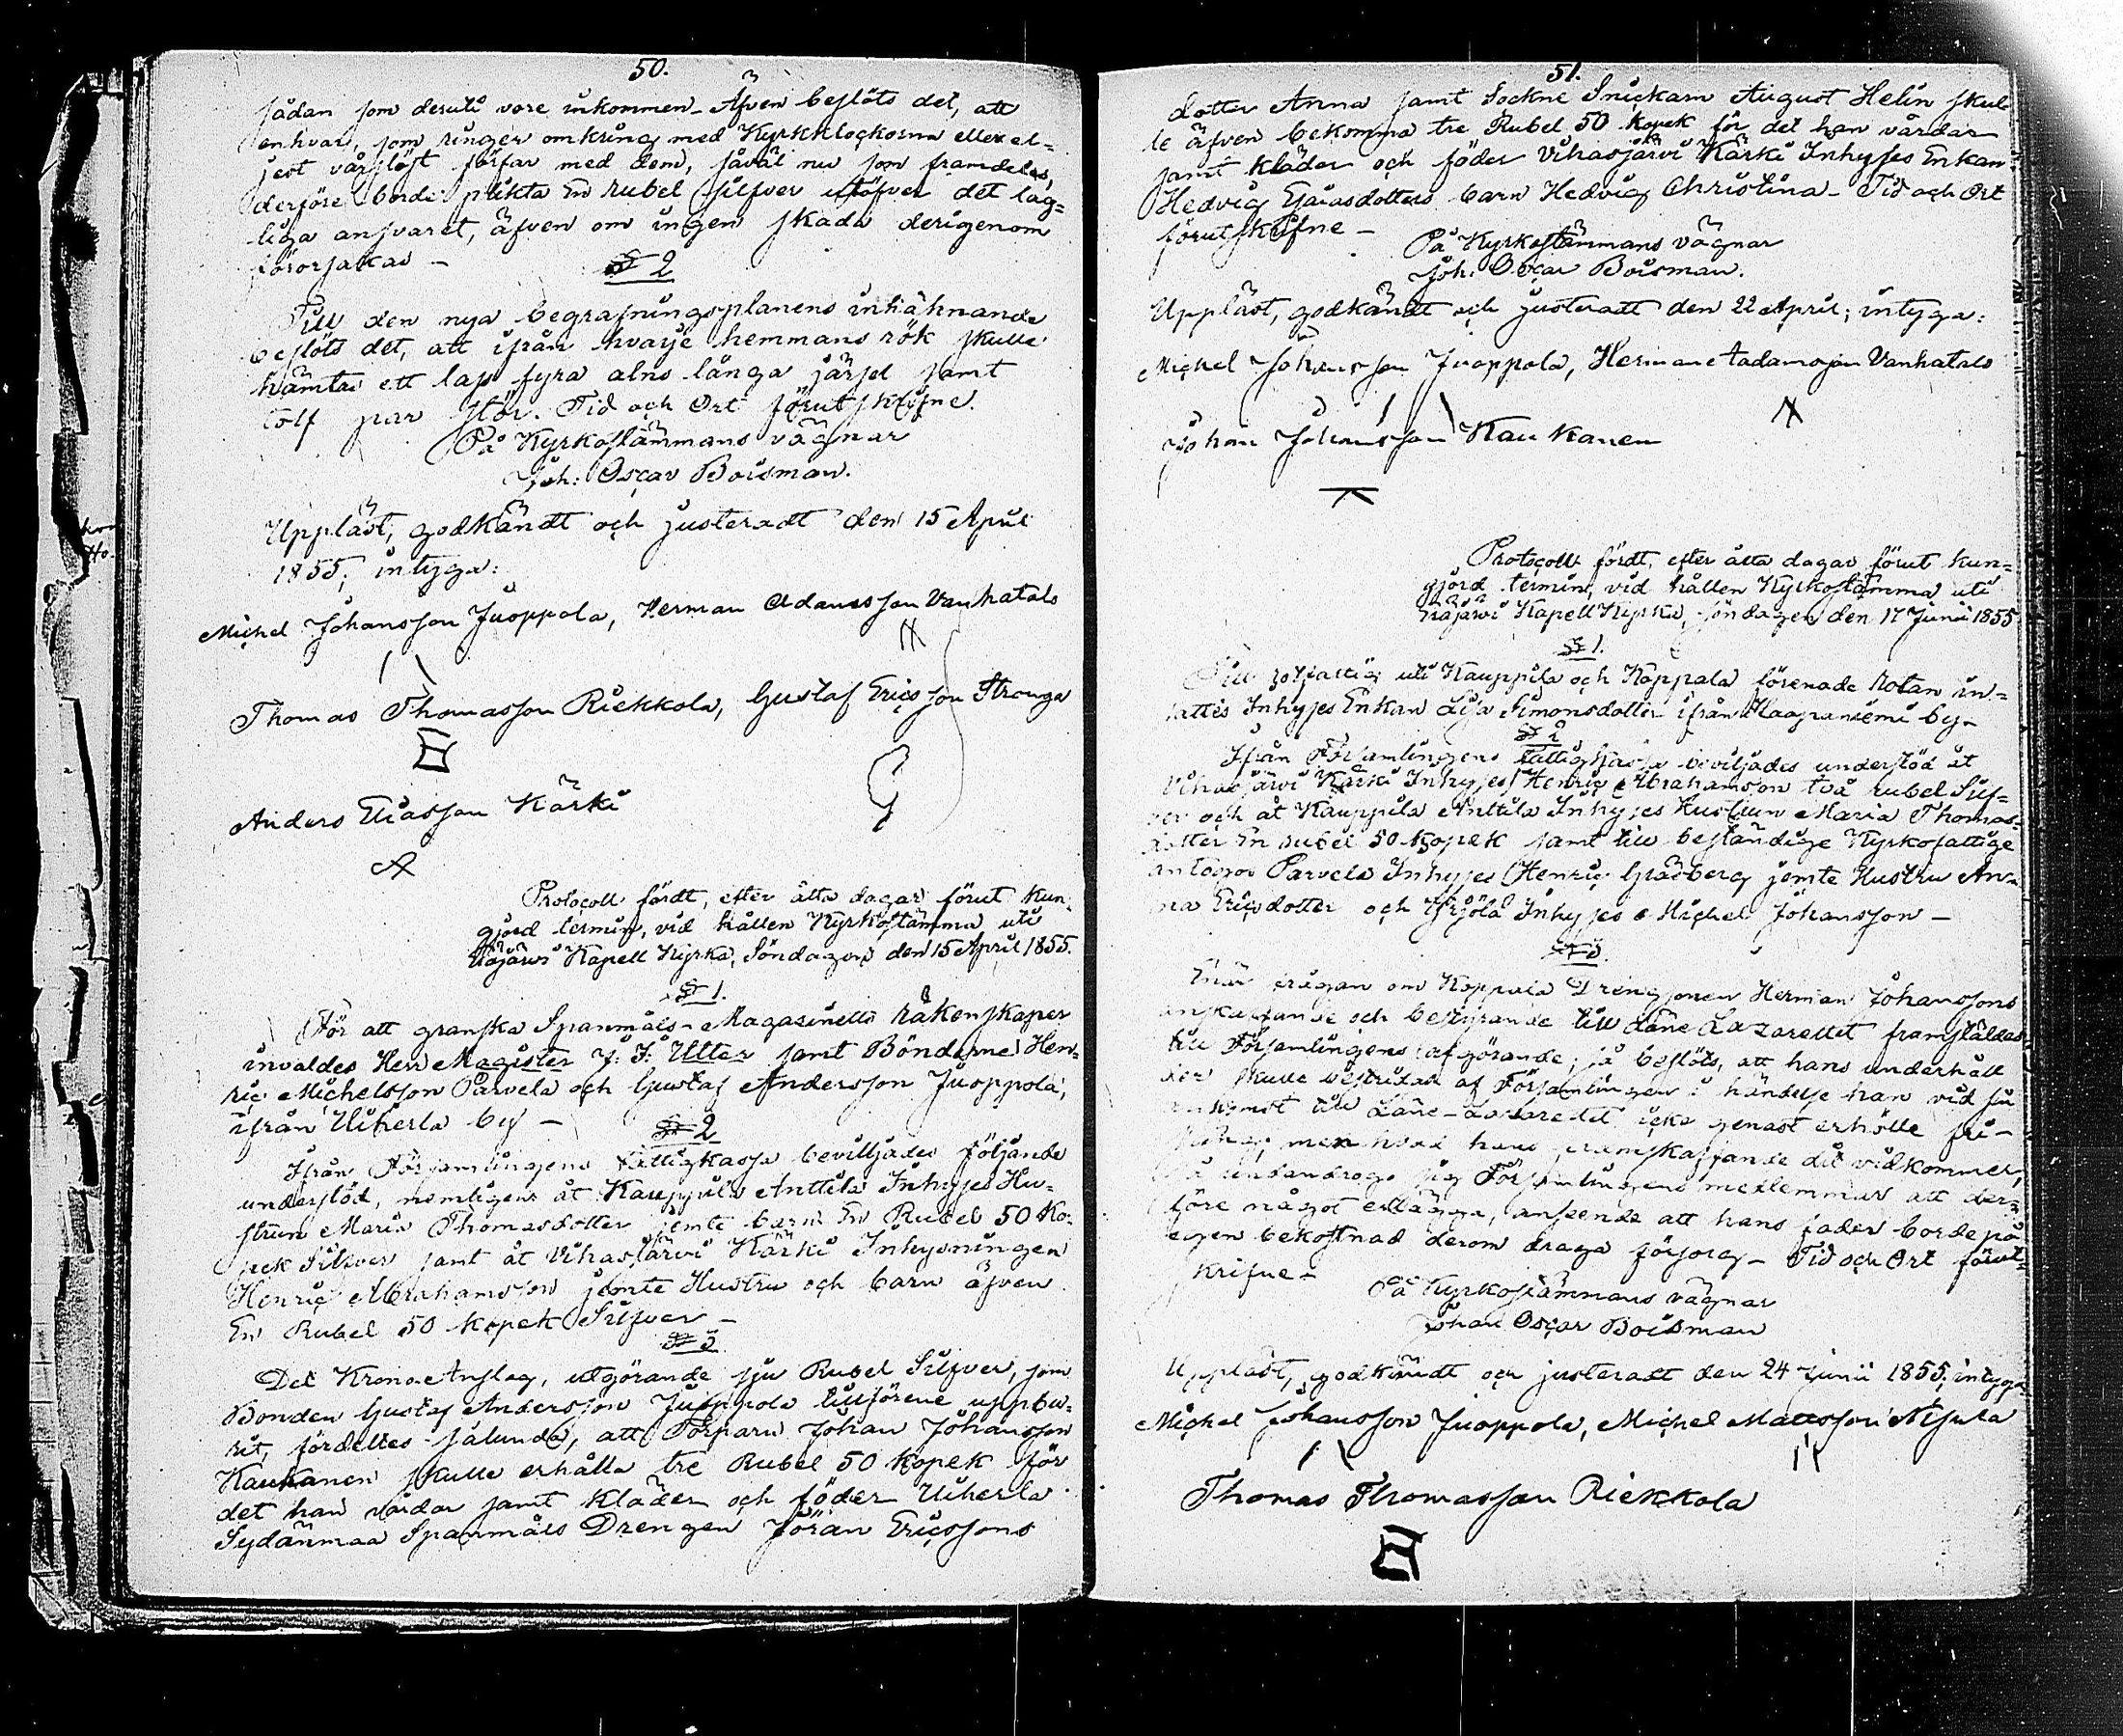 50.
sådan som deruti vore inkommen - Äfven beslöts det, att
enhvar, som ringer omkring med Kyrkklockorna eller el-
jest vårslöst förfar med dem, såväl nu som framdeles,
derföre borde plikta En rubel silfver utöfver det lag-
liga ansvaret, äfven om ingen skada derigenom
förorsakas -
§ 2
Till den nya begrafningsplanens inhähnande
beslöts det, att ifrån hvarje hemmans rök skulle
hämtas ett lass fyra alns långa järsel samt
tolf par stör. Tid och Ort förutskrifne.
På Kyrkostämmans vägnar
Joh: Oscar Boisman.
Uppläst, godkändt och justeradt den 15 April
1855; intyga:
Michel Johansson Juoppola, Herman Adamsson Vanhatalo
Thomas Thomasson Riekkola, Gustaf Ericsson Stronga
Anders Eliasson Kärki
Protocoll fördt, efter åtta dagar förut kun-
gjord termin, vid hållen Kyrkostämma uti
Kapell Kyrka, Söndagen den 15 April 1855.
§ 1.
För att granska Spanmåls-Magasinetts räkenskaper
invaldes Herr Magister J: J: Utter samt Bönderne Hen-
ric Michelsson Parvela och Gustaf Andersson Juoppola,
ifrån Uiherla by -
§ 2
Ifrån Församlingens Fattigkassa beviljades följande
understöd, nemligen åt Kauppila Anttila Inhyses Hu-
strun Maria Thomasdotter jemte barn En Rubel 50 Ko-
pek Silfver samt åt Vihasjärvi Kärki Inhysningen
Henric Abrahamsson jemte Hustru och barn äfven
En Rubel 50 kopek Silfver -
§ 3
Det Krono Anslag, utgörande sju Rubel Silfver, som
Bonden Gustaf Andersson Juoppola tillförene uppbu-
rit, fördeltes sålunda, att Torparn Johan Johansson
Kaukanen skulle erhålla tre Rubel 50 kopek för
det han vårdar samt kläder och föder Uiherla
Sydänmaa Spanmåls Drengen Jöran Ericssons
51.
dotter Anna samt Sockne Snickarn August Helin skul-
le äfven bekomma tre Rubel 50 kopek för det han vårdar
samt kläder och föder Vihasjärvi Kärki Inhyses Enkan
Hedvig Esaiasdotters barn Hedvig Christina - Tid och Ort
förutskrifne -
På Kyrkostämmans vägnar
Joh: Oscar Boisman.
Uppläst, godkändt och justeradt den 22 April; intyga:
Michel Johansson Juoppola, Herman Aadamsson Vanhatalo
Johan Johansson Kaukanen
Protocoll fördt, efter åtta dagar förut kun-
gjord termin, vid hållen Kyrkostämma uti
Kapell Kyrka, Söndagen den 17 Junii 1855
§ 1.
Till rotfattig uti Kauppila och Koppala förenade Rotan in-
tattes Inhyses Enkan Lisa Simonsdotter ifrån Haapaniemi by -
§ 2
Ifrån Församlingens Fattigkassa beviljades understöd åt
Vihasjärvi Kärki Inhyses Henric Abrahamsson två rubel Silf-
ver och åt Kauppila Anttila Inhyses Hustrun Maria Thomas-
dotter En rubel 50 kopek samt till beständige Kyrkofattige
antogos Parvela Inhyses Henric Gråsberg jemte Hustru An-
na Ericsdotter och Yrjölä Inhyses Michel Johansson -
§ 3.
När frågan om Koppala Drengsonen Herman Johanssons
anskaffande och befrande till Läne Lazarettet framställdes
till Församlingens afgörande; så beslöts, att hans underhåll
der skulle bestridas af Församlingen i händelse han vid sin
ankomst till Läne-Lazarettet icke genast erhölle fri-
men hvad hans framskaffande dit vidkommer,
så undandrogo sig Församlingens medlemmar att der-
före något erlägga, anseende att hans fader borde på
egen bekostnad derom draga försorg - Tid och Ort förut-
skrifne -
På Kyrkostämmans vägnar
Johan Oscar Boisman
Uppläst, godkändt och justeradt den 24 Junii 1855; intyga
Michel Johansson Juoppola, Michel Mattsson Nisula
Thomas Thomasson Riekkola